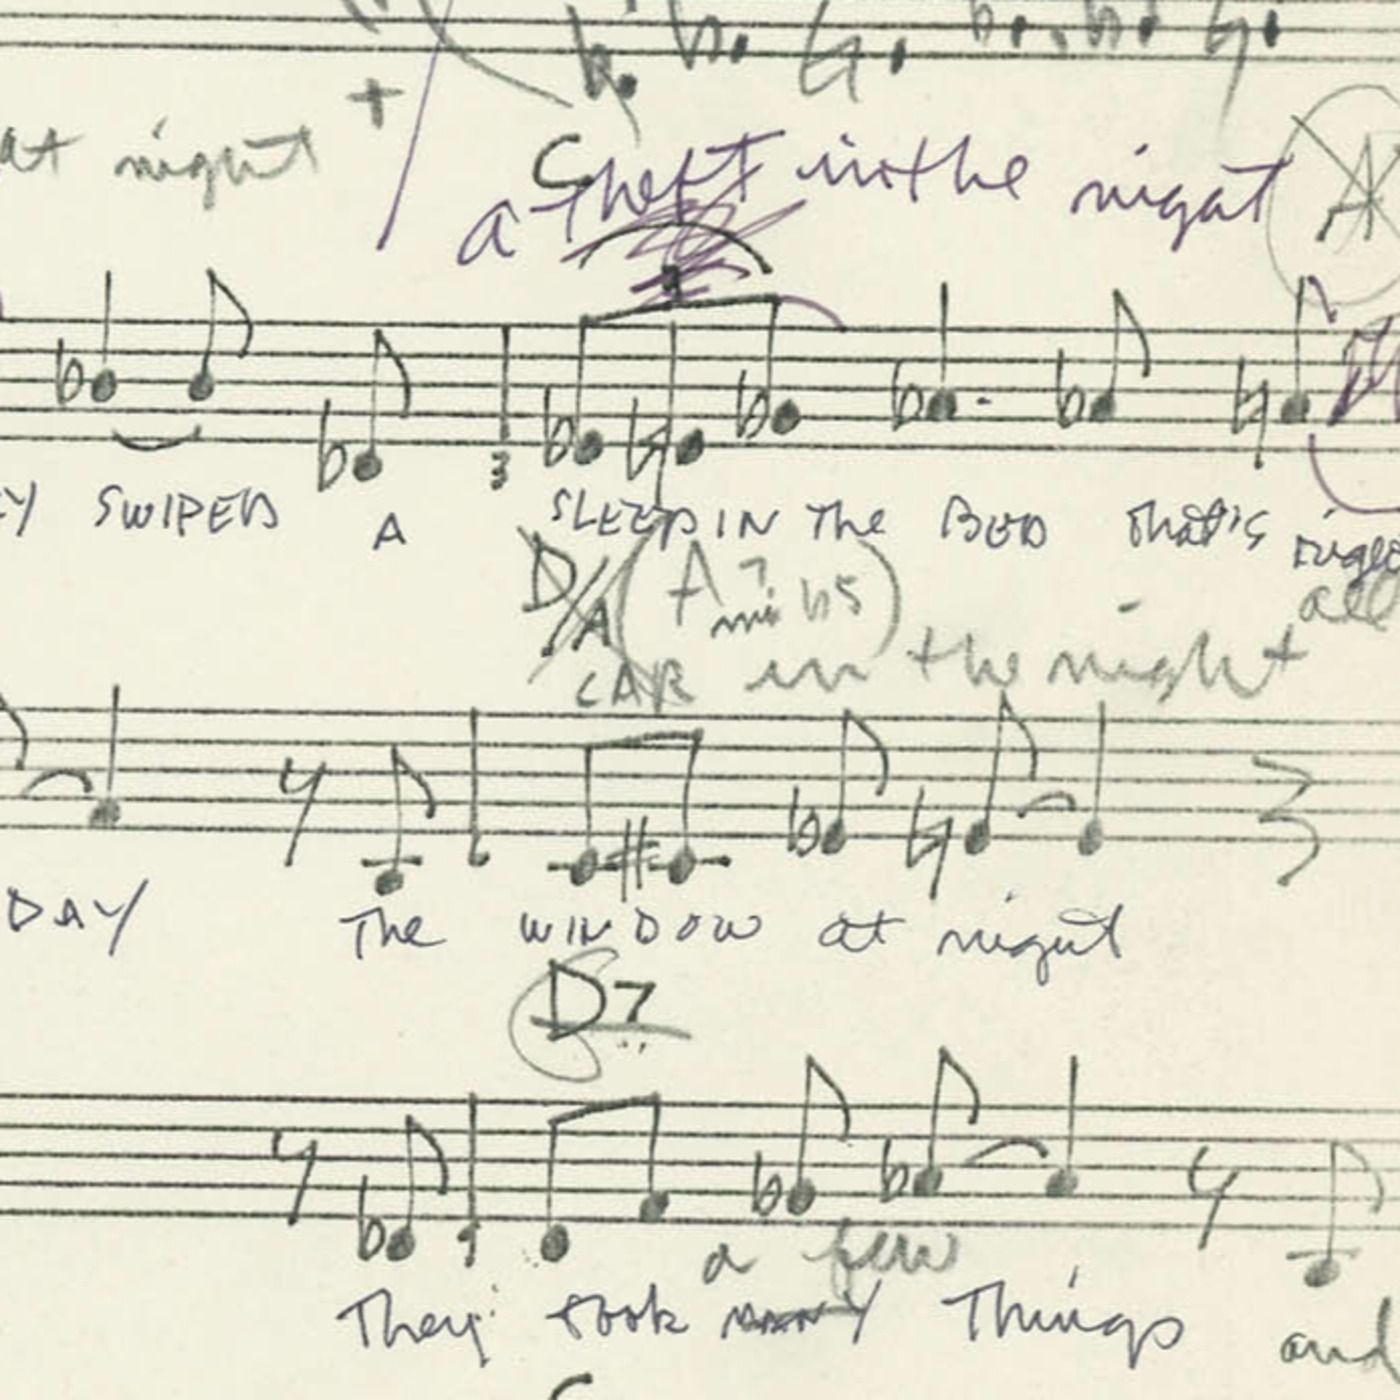 at night
C
a Theft in the night
SWIPED A SLEEP IN The BED That's
D/A (Ami7b5) all
CAR in the night
DAY The WINDOW at night
D7
a few
They took MANY Things and